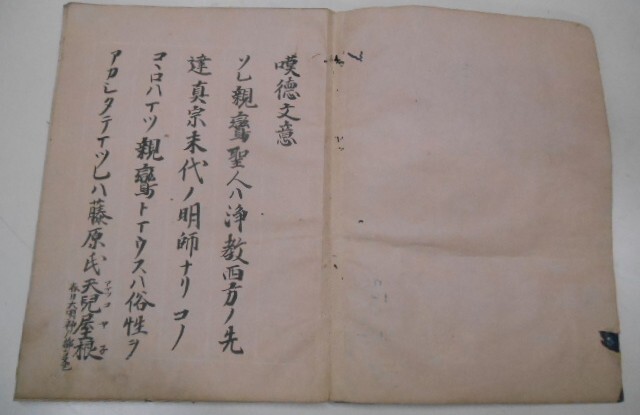 嘆德文意
ソレ親鸞聖人ハ浄教西方ノ先
達真宗末代ノ明師ナリコノ
コヽロハイツ親鸞トイウスハ俗性ヲ
アカシタテイツレハ藤原氏天兒屋根
アマツコヤネ
春日大明神ノ